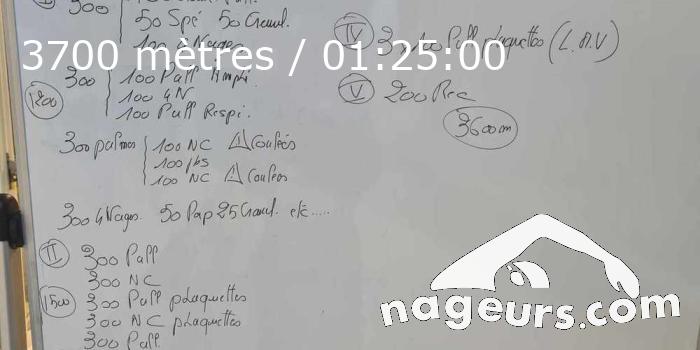 300
50 Spé 50 Crawl.
100 4 Nages
3700 mètres / 01:25:00
300 100 Pull Simple.
100 4N
1200
100 Pull Respi.
300 palmes 100 NC ⚠ Coulées
100 jbs
100 NC ⚠ Coulées
300 4 Nages. 50 Pap 25 Crawl. etc.....
II 300 Pull
300 NC
1500 300 Pull plaquettes
300 NC plaquettes
300 Pull.
IV 3 x 100 Pull plaquettes (L.M.V)
V 200 Rec
3600m
nageurs.com